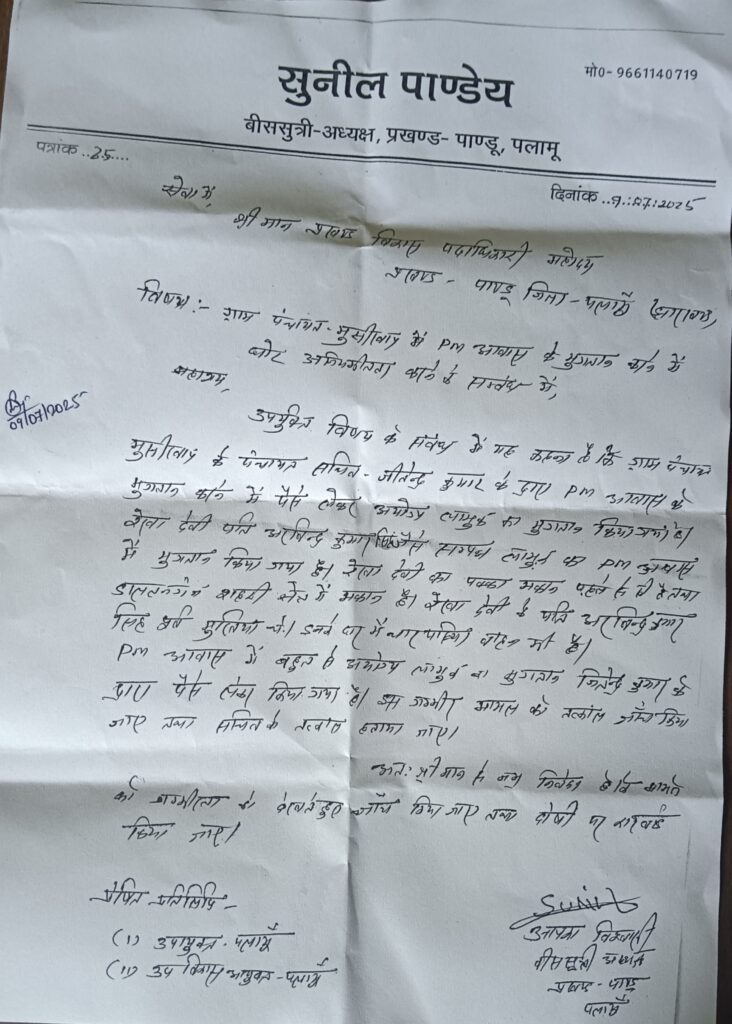 मो0- 9661140719
सुनील पाण्डेय
बीससूत्री-अध्यक्ष, प्रखण्ड- पाण्डू, पलामू
पत्रांक ..25....
दिनांक ..9.:07:2025
सेवा में,
श्रीमान प्रखण्ड विकास पदाधिकारी महोदय
प्रखण्ड - पाण्डू जिला - पलामू (झारखण्ड)
विषय :- ग्राम पंचायत - मुसीखाप में PM आवास के भुगतान करने में
घोर अनियमितता करने के सम्बंध में,
महाशय,
09/07/2025
उपर्युक्त विषय के संबंध में यह कहना है कि ग्राम पंचायत
मुसीखाप के पंचायत सचिव - जीतेन्द्र कुमार के द्वारा PM आवास के
भुगतान करने में पैसे लेकर अयोग्य लाभुक का भुगतान किया गया है।
रेखा देवी पति अरविन्द्र कुमार सिंह जैसे सम्पन्न लाभुक का PM आवास
में भुगतान किया गया है। रेखा देवी का पक्का मकान पहले से ही है तथा
डालटनगंज शहरी क्षेत्र में मकान है। रेखा देवी के पति अरविन्द्र कुमार
सिंह पूर्व मुखिया थे। इनके घर में चार पहिया वाहन भी है।
PM आवास में बहुत से अयोग्य लाभुक का भुगतान जितेन्द्र कुमार के
द्वारा पैसे लेकर किया गया है। इस गम्भीर मामले को तत्काल जाँच किया
जाए तथा सचिव के तत्काल हटाया जाए।
अतः श्रीमान से नम्र निवेदन है कि मामले
की गम्भीरता को देखते हुए जाँच किया जाए तथा दोषी पर कारवाई
किया जाए।
प्रेषित प्रतिलिपि -
(1) उपायुक्त - पलामू
(11) उप विकास आयुक्त - पलामू
Sunil
आपका विश्वासी
बीससूत्री अध्यक्ष
प्रखण्ड - पाण्डू
पलामू